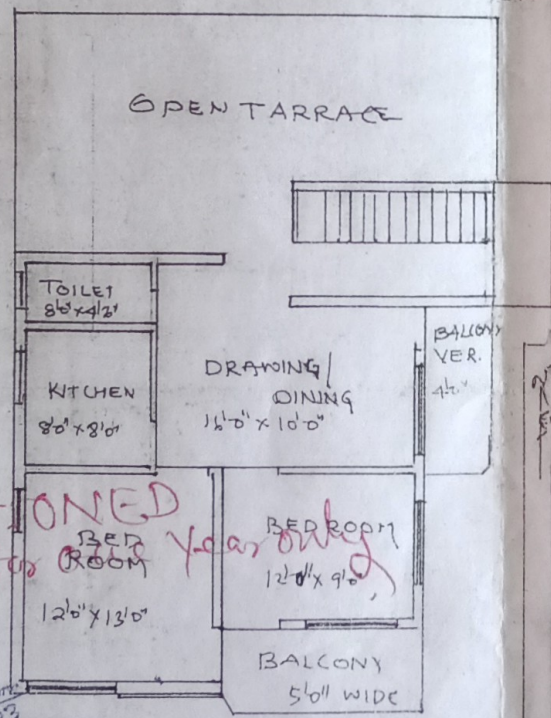 OPEN TARRACE
TOILET
8'0" x 4'2"
KITCHEN
8'0" x 8'0"
DRAWING/
DINING
16'0" x 10'0"
BALCONY
VER.
BED
ROOM
12'0" x 13'0"
BED ROOM
12'0" x 9'0"
BALCONY
5'0" WIDE
IONED
year only